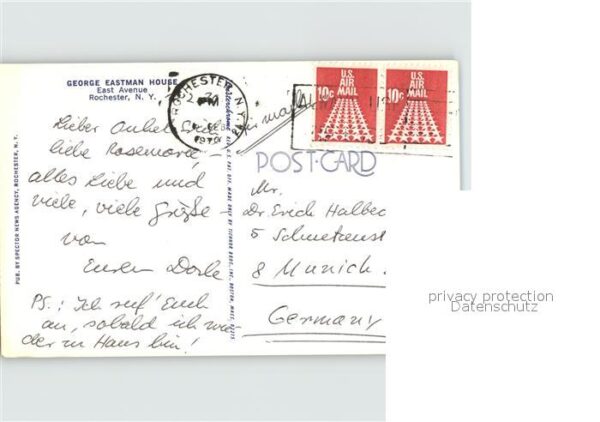 GEORGE EASTMAN HOUSE
East Avenue
Rochester, N. Y.
ROCHESTER, N.Y.
PM
1970
U.S.
AIR
MAIL
10c
U.S.
AIR
MAIL
10c
air mail
POST CARD
Lieber Onkel
liebe Rosemarie,
alles Liebe und
viele, viele Grüße –
von
Euren Dorle
PS.: Ich ruf' Euch
an, sobald ich wie-
der zu Haus bin!
Mr.
Dr. Erich
5
8 Munich.
Germany
PUB. BY SPECTOR NEWS AGENCY, ROCHESTER, N. Y.
privacy protection
Datenschutz